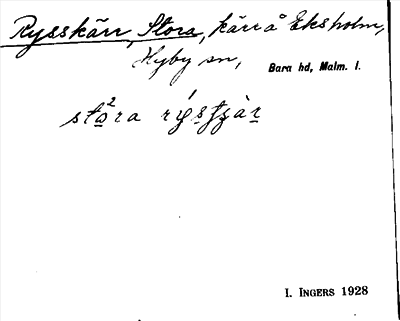 Rysskärr, Stora, kärr å Eksholm,
Hyby sn, Bara hd, Malm. l.
sto²ra
I. INGERS 1928